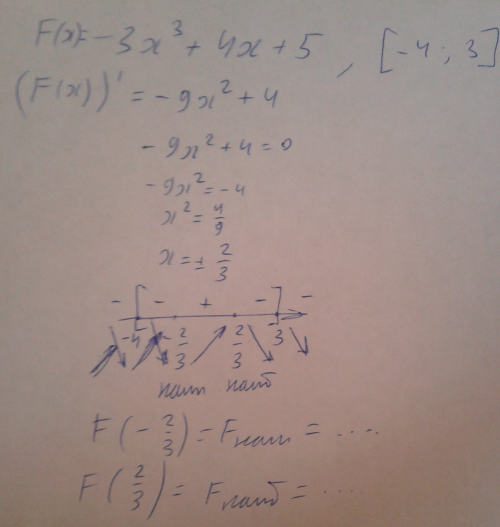 F(x)= -3x³ + 4x + 5 , [-4; 3]
(F(x))' = -9x² + 4
-9x² + 4 = 0
-9x² = -4
x² = 4/9
x = ± 2/3
- [ - + - ] -
-4 -2/3 2/3 3
наим наиб
F(-2/3) = Fнаим = ....
F(2/3) = Fнаиб = ....